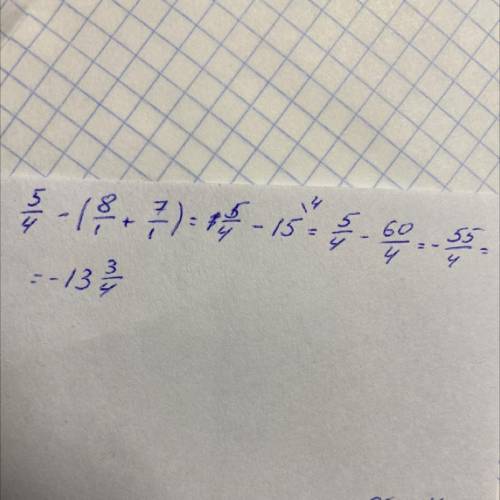 5/4 - (8/1 + 7/1) = 5/4 - 15\4 = 5/4 - 60/4 = - 55/4 =
= - 13 3/4